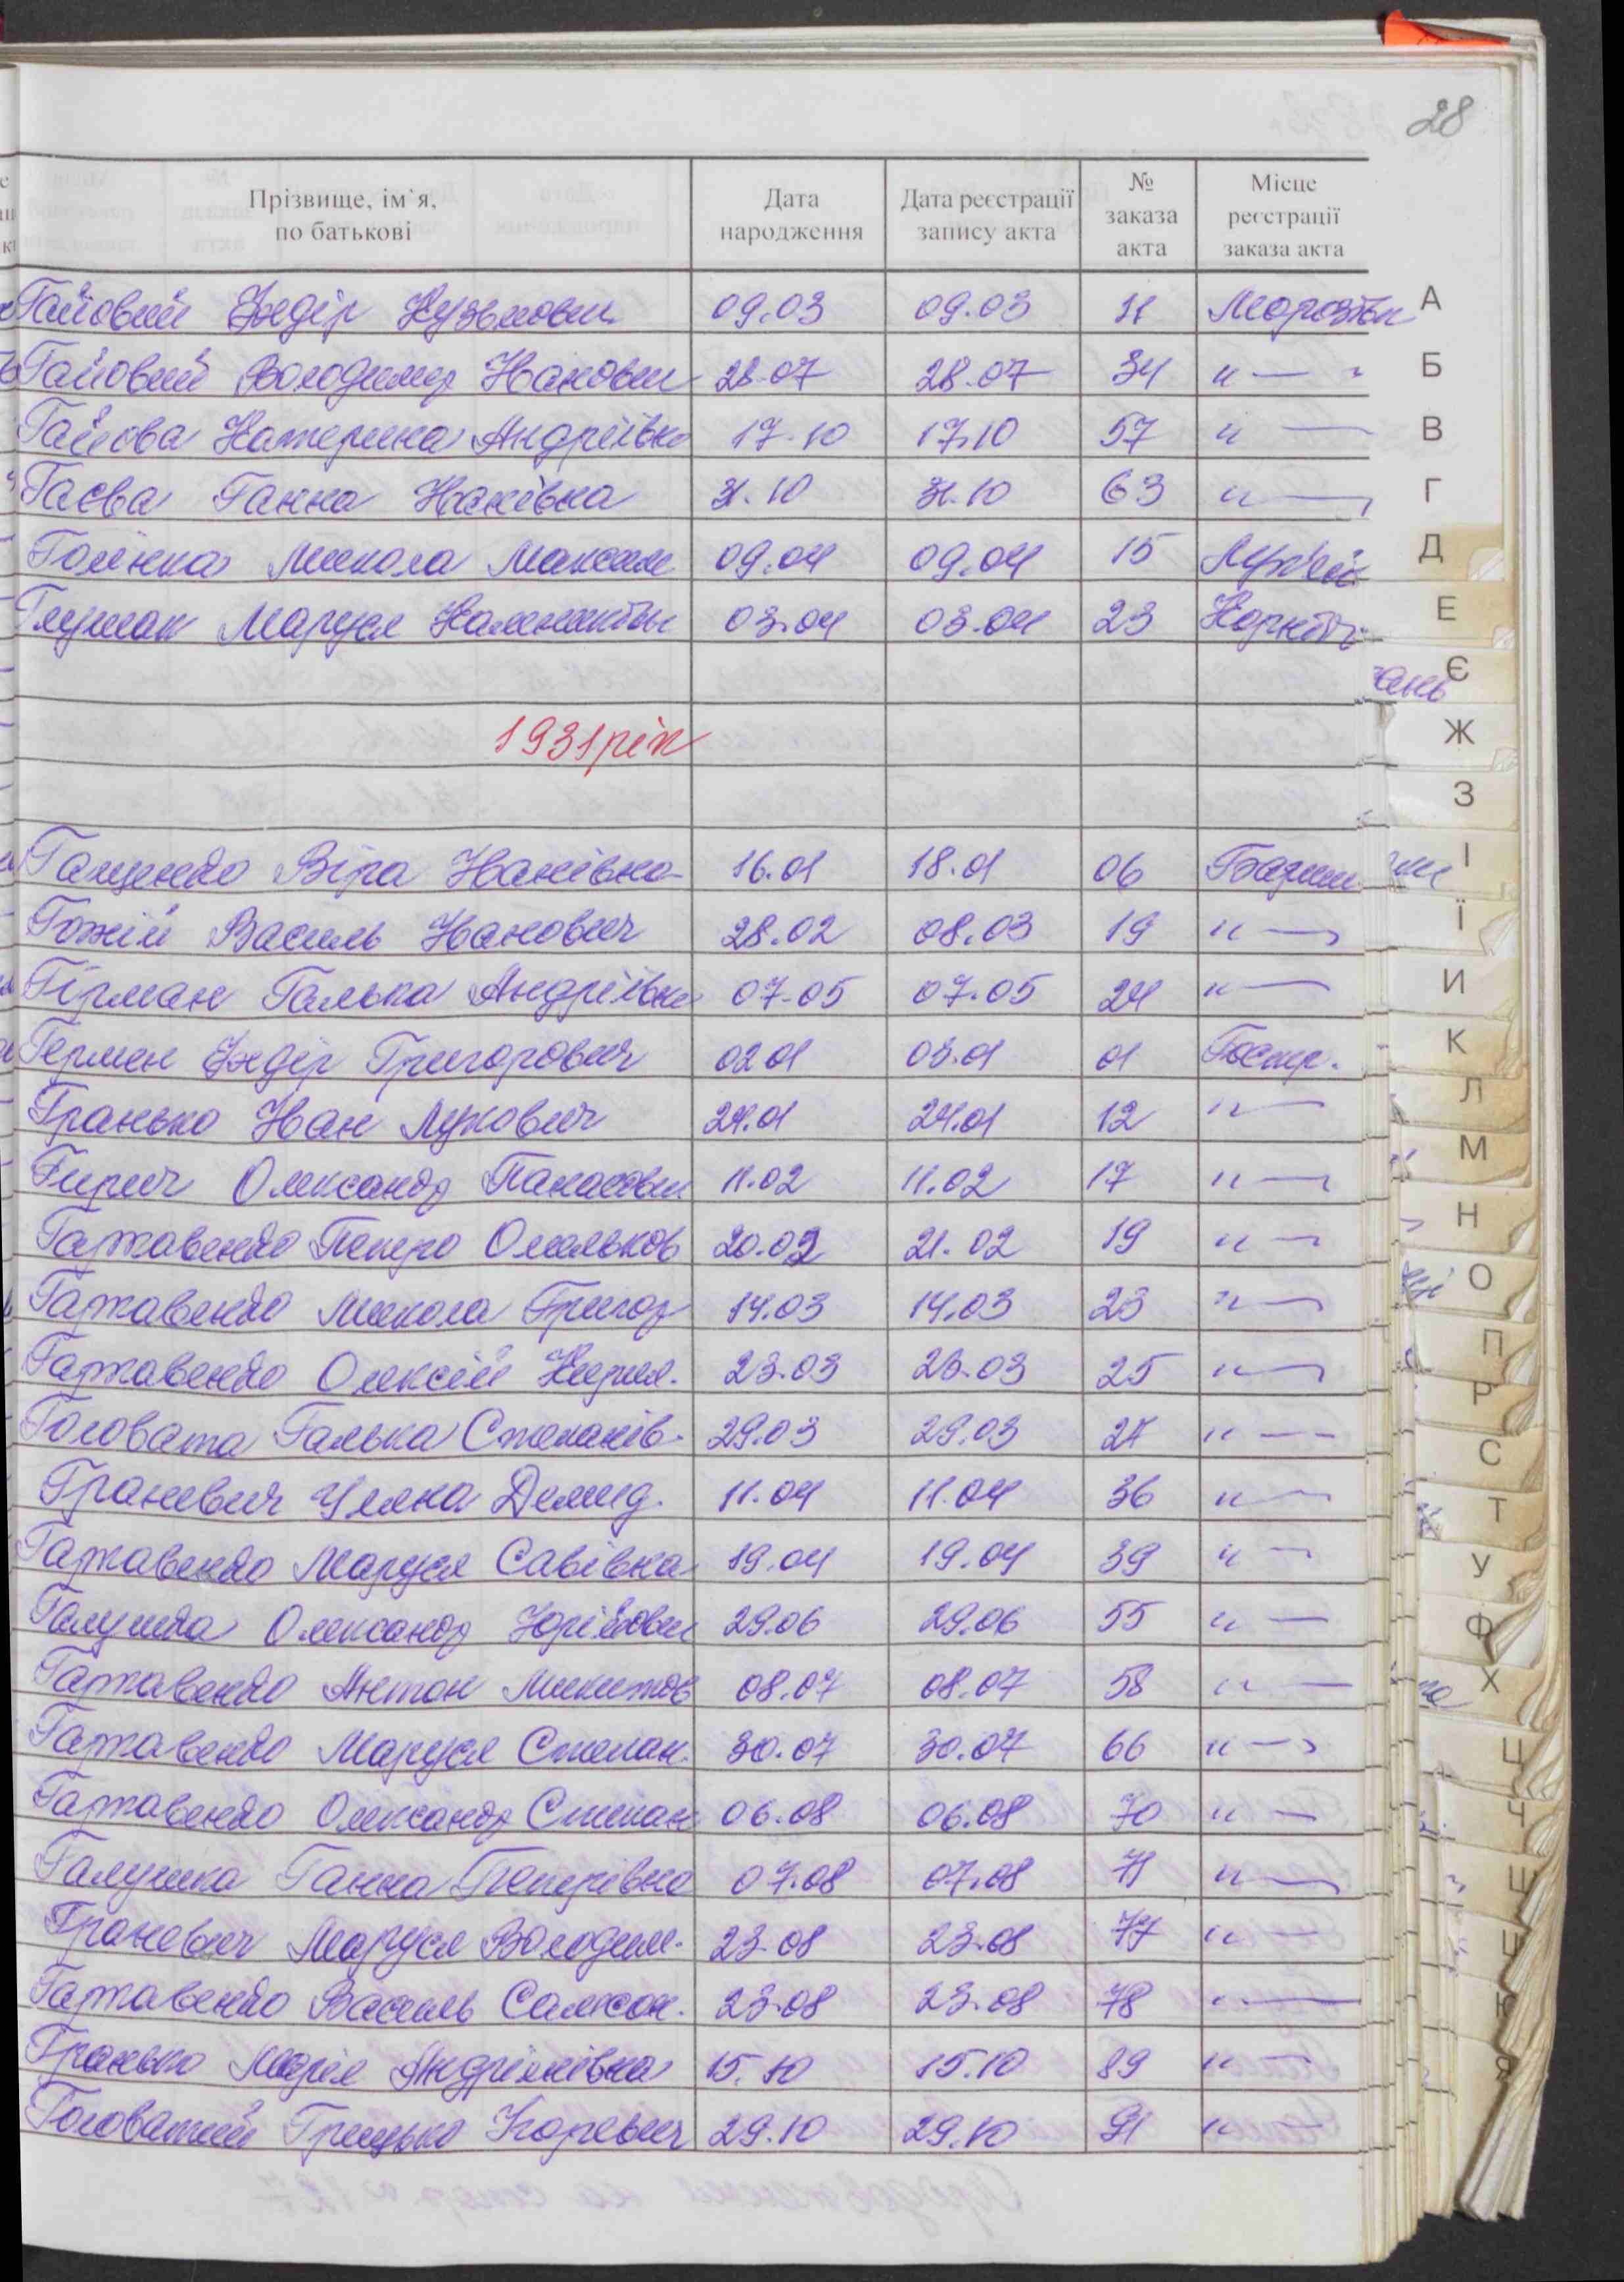 28
Прізвище, ім`я, по батькові Дата народження Дата реєстрації запису акта № заказа акта Місце реєстрації заказа акта
Гайовий Федір Кузьмович 09.03 09.03 11
Гайовий Володимир Іванович 28.07 28.07 34 " —
Гайова Катерина Андріївна 17.10 17.10 57 " —
Гаєва Ганна 31.10 31.10 63 " —
Микола Максим 09.04 09.04 15
Глушак Маруся 03.04 03.04 23
1931 рік
Віра Іванівна 16.01 18.01 06
Гожій Василь Іванович 28.02 08.03 19 " —
Гірман Галька Андріївна 07.05 07.05 24 " —
Герман Федір Григорович 02.01 03.01 01 Гостр.
Гранько Іван Лукович 24.01 24.01 12 " —
Гирич Олександр Панасович 11.02 11.02 17 " —
Гартавенко Петро Омельков 20.02 21.02 19 " —
Гартавенко Микола Григор 14.03 14.03 23 " —
Гартавенко Олексій Кирил. 23.03 23.03 25 " —
Головата Галька Степанів. 29.03 29.03 27 " —
Граневич Уляна Демид. 11.04 11.04 36 " —
Гартавенко Маруся Савівна 19.04 19.04 39 " —
Галушка Олександр Юрійович 29.06 29.06 55 " —
Гартавенко Антон Микитов 08.07 08.07 58 " —
Гартавенко Маруся Степан. 30.07 30.07 66 " —
Гартавенко Олександр Степан 06.08 06.08 70 " —
Галушка Ганна Петрівна 07.08 07.08 71 " —
Граневич Маруся Володим. 23.08 23.08 77 " —
Гартавенко Василь Самсон. 23.08 23.08 78 " —
Гранько Марія 15.10 15.10 89 " —
Головатий Грицько 29.10 29.10 91 "
А
Б
В
Г
Д
Е
Є
Ж
З
І
Ї
И
К
Л
М
Н
О
П
Р
С
Т
У
Ф
Х
Ц
Ч
Ш
Щ
Ю
Я